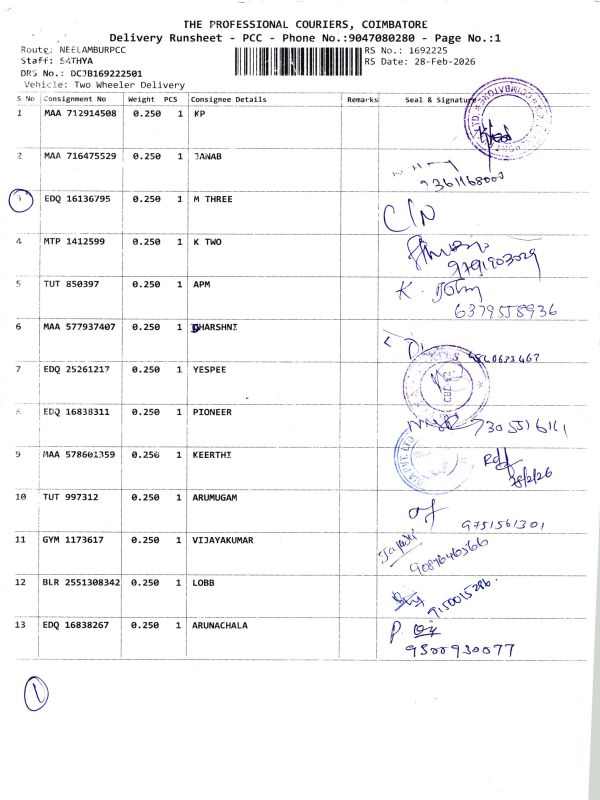 THE PROFESSIONAL COURIERS, COIMBATORE
Delivery Runsheet - PCC - Phone No.:9047080280 - Page No.:1
Route: NEELAMBURPCC
Staff: SATHYA
DRS No.: DCJB169222501
Vehicle: Two Wheeler Delivery
RS No.: 1692225
RS Date: 28-Feb-2026
S No Consignment No Weight PCS Consignee Details Remarks Seal & Signature
1 MAA 712914508 0.250 1 KP
2 MAA 716475529 0.250 1 JANAB
9361168000
3 EDQ 16136795 0.250 1 M THREE
C/N
4 MTP 1412599 0.250 1 K TWO
9791903029
5 TUT 850397 0.250 1 APM
K. John
6379558936
6 MAA 577937407 0.250 1 DHARSHNI
7 EDQ 25261217 0.250 1 YESPEE
8 EDQ 16838311 0.250 1 PIONEER
9 MAA 578601359 0.250 1 KEERTHI
28/2/26
10 TUT 997312 0.250 1 ARUMUGAM
9751561301
11 GYM 1173617 0.250 1 VIJAYAKUMAR
12 BLR 2551308342 0.250 1 LOBB
9150015286.
13 EDQ 16838267 0.250 1 ARUNACHALA
9500930077
1